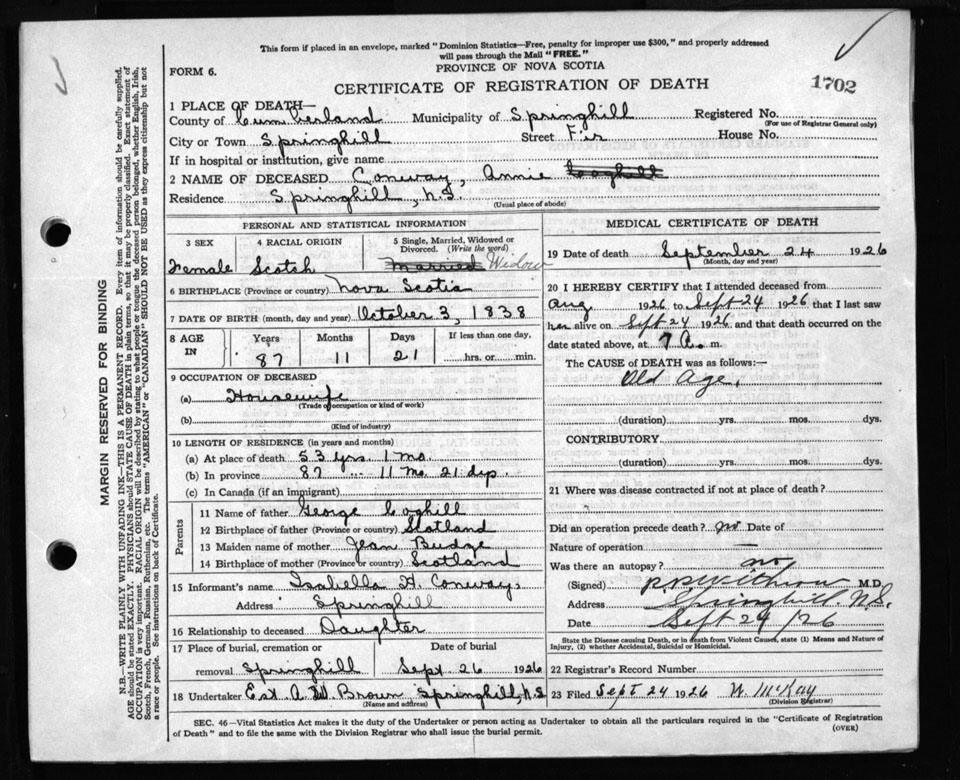 This form if placed in an envelope, marked "Dominion Statistics—Free, penalty for improper use $300," and properly addressed
will pass through the Mail "FREE."
PROVINCE OF NOVA SCOTIA
FORM 6.
CERTIFICATE OF REGISTRATION OF DEATH
1702
1 PLACE OF DEATH—
County of Cumberland Municipality of Springhill Registered No.
(For use of Registrar General only)
City or Town Springhill Street Fir House No.
If in hospital or institution, give name
2 NAME OF DECEASED Coneway, Annie Coghill
Residence Springhill, N.S.
(Usual place of abode)
PERSONAL AND STATISTICAL INFORMATION
3 SEX 4 RACIAL ORIGIN 5 Single, Married, Widowed or
Divorced. (Write the word)
Female Scotch Married Widow
6 BIRTHPLACE (Province or country) Nova Scotia
7 DATE OF BIRTH (month, day and year) October 3, 1838
8 AGE IN Years Months Days If less than one day,
87 11 21 hrs. or min.
9 OCCUPATION OF DECEASED
(a) Housewife
(Trade occupation or kind of work)
(b)
(Kind of industry)
10 LENGTH OF RESIDENCE (in years and months)
(a) At place of death 53 yrs. 1 mo.
(b) In province 87 " 11 Mo. 21 dys.
(c) In Canada (if an immigrant)
Parents
11 Name of father George Coghill
12 Birthplace of father (Province or country) Scotland
13 Maiden name of mother Jean Budge
14 Birthplace of mother (Province or country) Scotland
15 Informant's name Isabella H. Coneway,
Address Springhill
16 Relationship to deceased Daughter
17 Place of burial, cremation or Date of burial
removal Springhill Sept 26 1926
18 Undertaker Est. A. W. Brown Springhill, N.S
(Name and address)
MEDICAL CERTIFICATE OF DEATH
19 Date of death September 24 1926
(Month, day and year)
20 I HEREBY CERTIFY that I attended deceased from
Aug 1926 to Sept 24 1926 that I last saw
her alive on Sept 24 1926 and that death occurred on the
date stated above, at 7 A. m.
The CAUSE of DEATH was as follows:—
Old Age.
(duration) yrs. mos. dys.
CONTRIBUTORY.
(duration) yrs. mos. dys.
21 Where was disease contracted if not at place of death?
Did an operation precede death? no Date of
Nature of operation —
Was there an autopsy? no
(Signed) M.D.
Address Springhill. N.S.
Date Sept 24 /26
State the Disease causing Death, or in death from Violent Causes, state (1) Means and Nature of
Injury, (2) whether Accidental, Suicidal or Homicidal.
22 Registrar's Record Number
23 Filed Sept 24 1926 W. McKay
(Division Registrar)
SEC. 46—Vital Statistics Act makes it the duty of the Undertaker or person acting as Undertaker to obtain all the particulars required in the "Certificate of Registration
of Death" and to file the same with the Division Registrar who shall issue the burial permit.
(OVER)
MARGIN RESERVED FOR BINDING
N.B.—WRITE PLAINLY WITH UNFADING INK—THIS IS A PERMANENT RECORD. Every item of information should be carefully supplied.
AGE should be stated EXACTLY. PHYSICIANS should STATE CAUSE OF DEATH in plain terms, so that it may be properly classified. Exact statement of
OCCUPATION is very important. RACIAL ORIGIN will be described by stating to what people or tongue the deceased person belonged, whether English, Irish,
Scotch, French, German, Russian, Ruthenian, etc. The terms "AMERICAN" or "CANADIAN" SHOULD NOT BE USED as they express citizenship but not
a race or people. See instructions on back of Certificate.